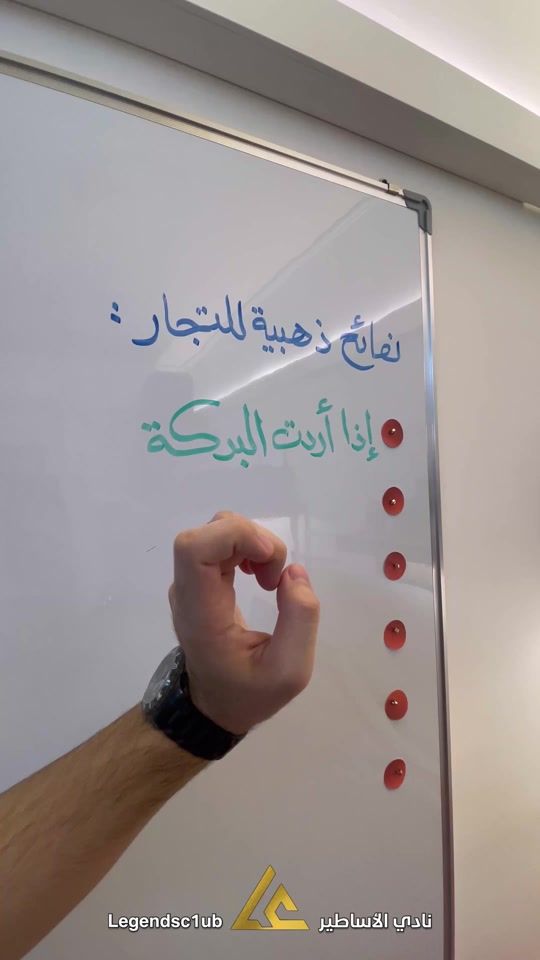 نصائح ذهبية للتجار :
إذا أردت البركة
Legendsc1ub
نادي الأساطير